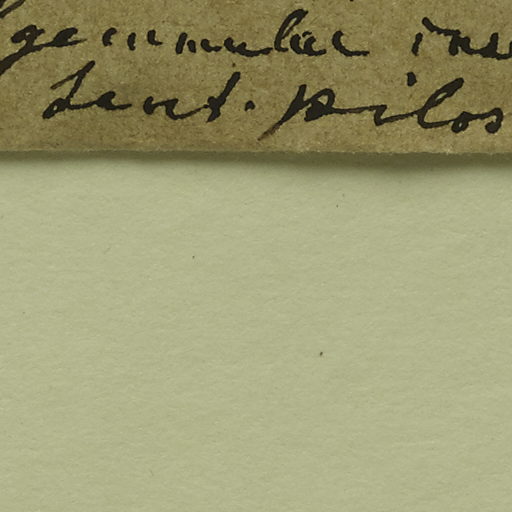 gemmulae ins
Lent. pilos